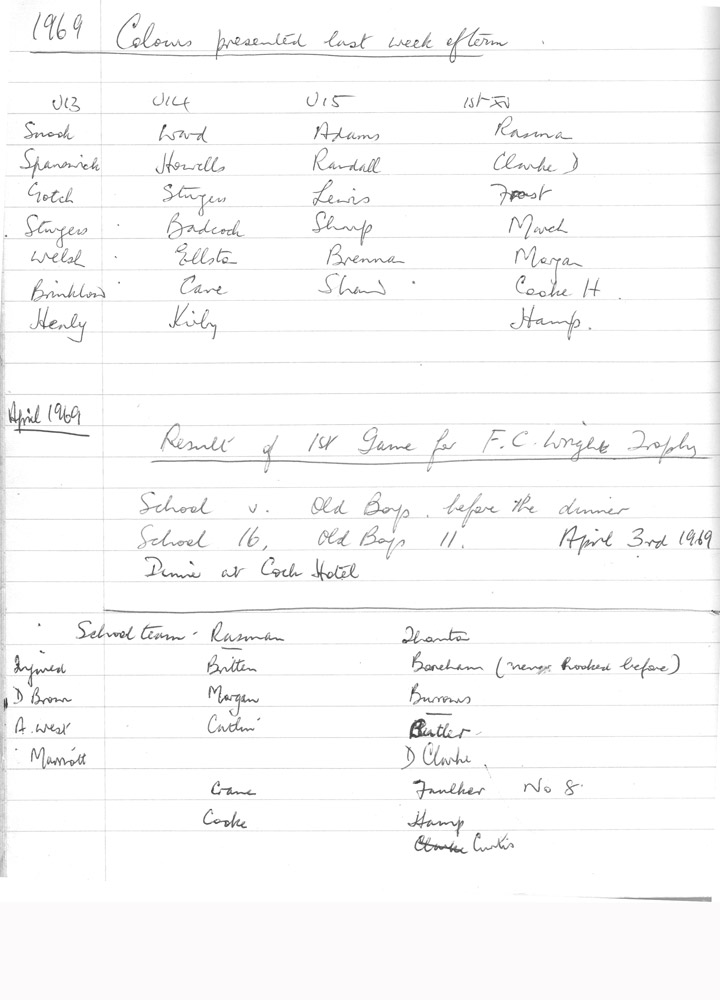 1969 Colours presented last week of term.
U13 U14 U15 1st XV
Snook Ward Adams Rasma
Spanswick Howells Randall Clarke D
Gotch Sturgess Lewis Frost
Sturgess Badcock Sharp March
Welsh Ellsto Brennan Morgan
Brinklow Cave Shaw Cooke H.
Henly Kirby Hamp.
April 1969
Result of 1st Game for F.C. Wright Trophy
School v. Old Boys. before the dinner
School 16, Old Boys 11. April 3rd 1969
Dinner at Cock Hotel
School team - Rasman
Injured Britten Boneham (never hooked before)
D Brown Morgan Burrows
A. West Catlin Butler
Marriott D Clarke.
Crane Faulkner No 8.
Cooke Hamp
Clarke Curtis